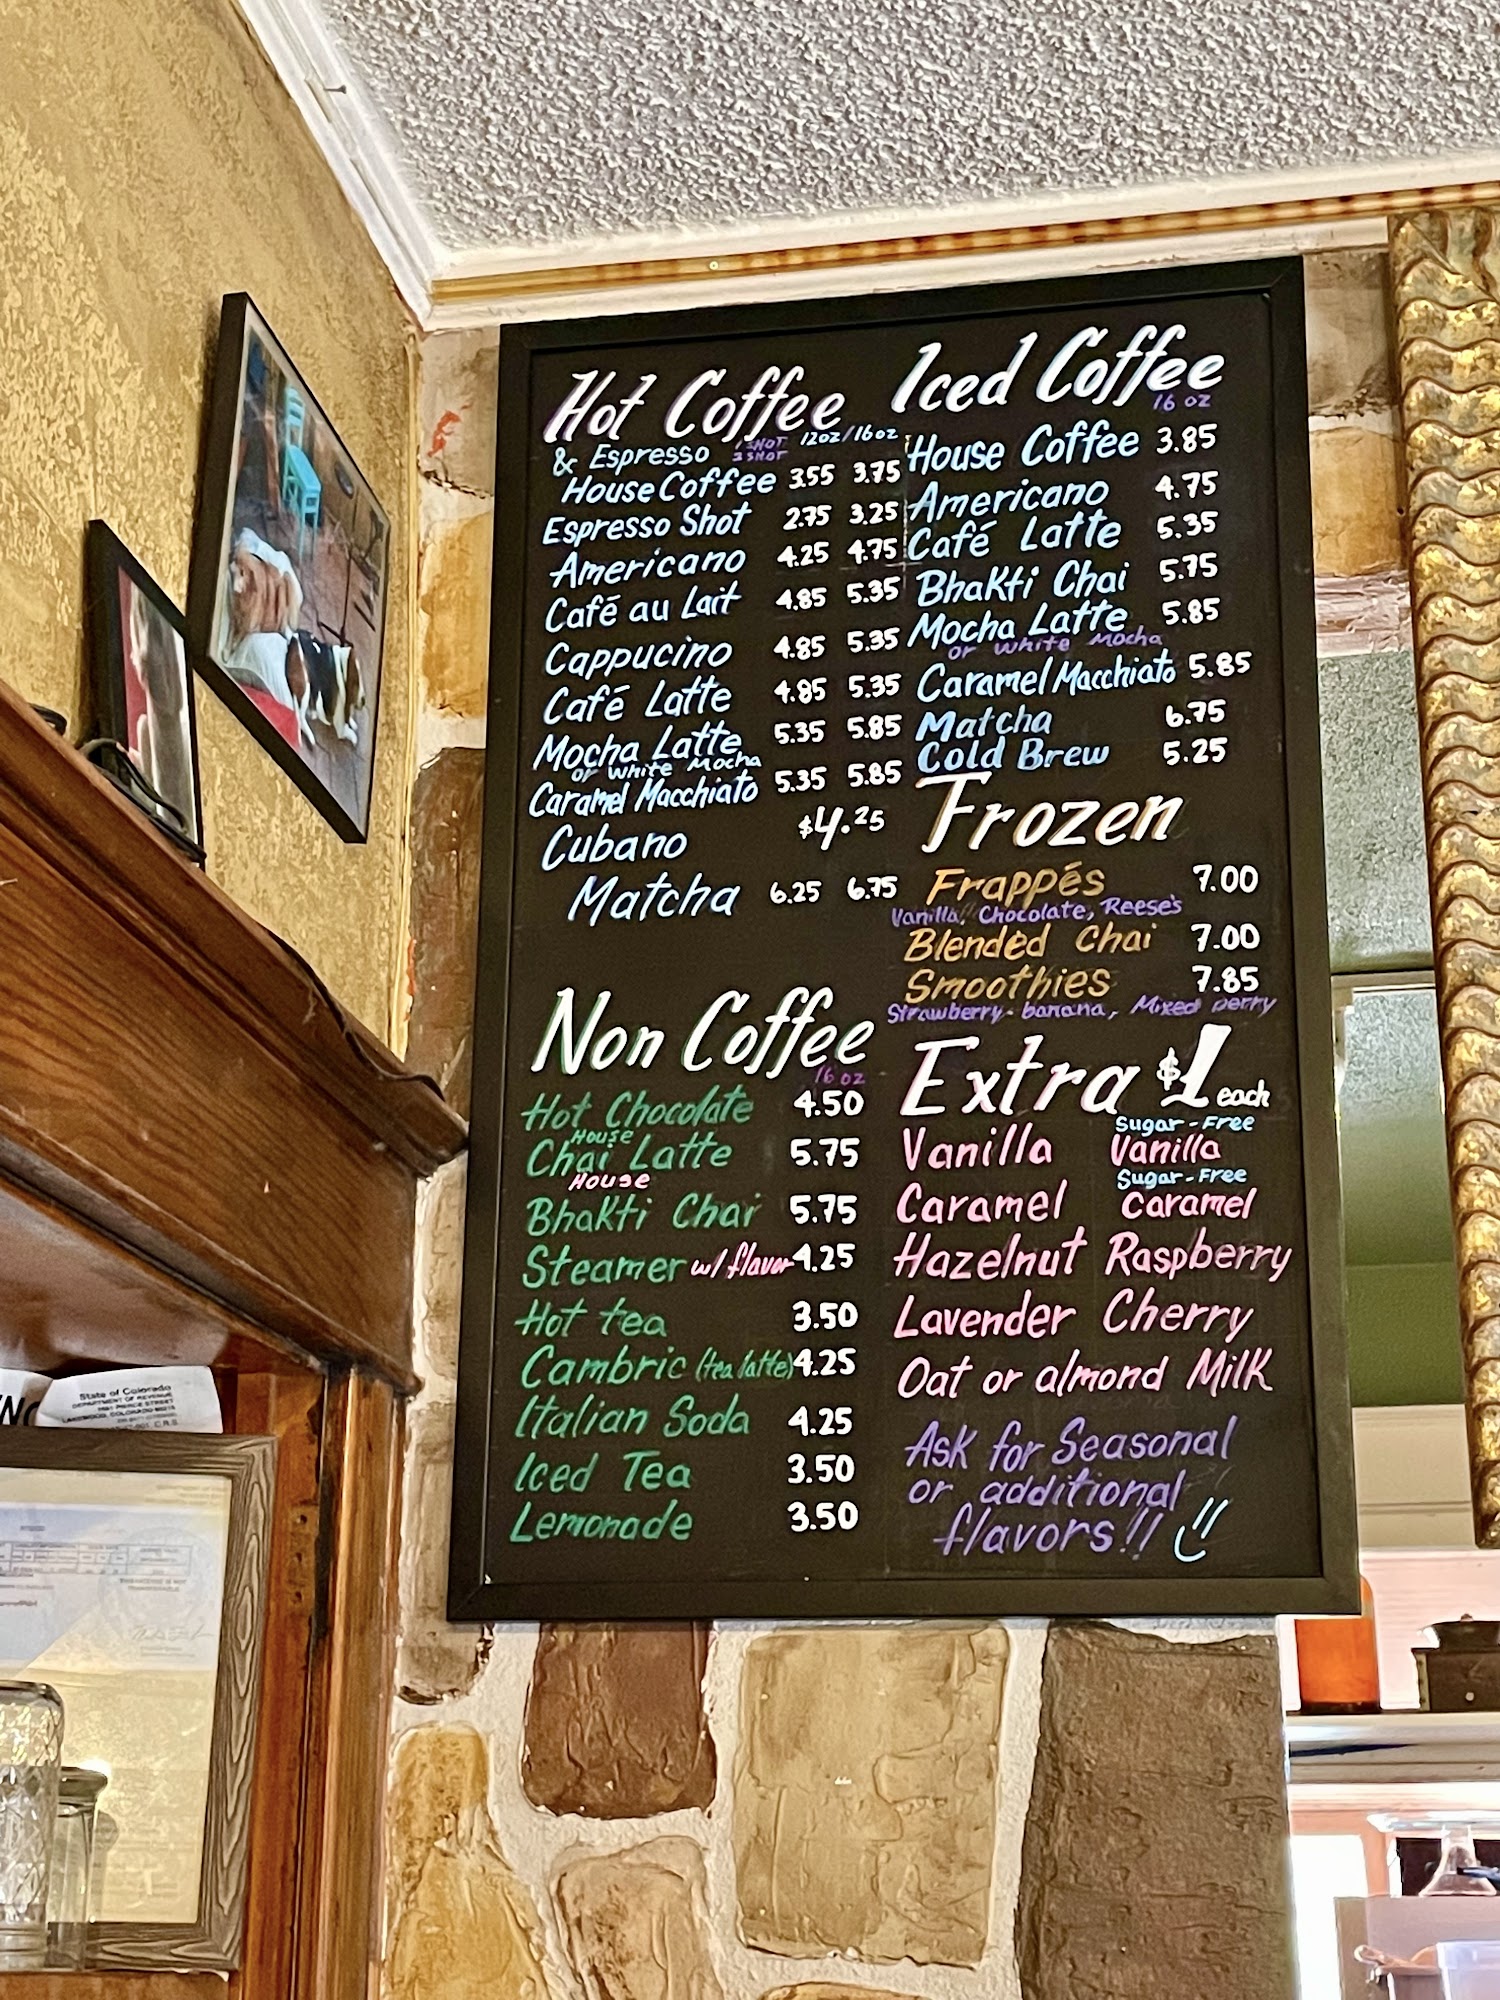 Hot Coffee
& Espresso 1 SHOT 2 SHOT 12oz/16oz
House Coffee 3.55 3.75
Espresso Shot 2.75 3.25
Americano 4.25 4.75
Café au Lait 4.85 5.35
Cappucino 4.85 5.35
Café Latte 4.85 5.35
Mocha Latte 5.35 5.85
or White Mocha
Caramel Macchiato 5.35 5.85
Cubano $4.25
Matcha 6.25 6.75
Non Coffee
16 oz
Hot Chocolate 4.50
House
Chai Latte 5.75
House
Bhakti Chai 5.75
Steamer w/ flavor 4.25
Hot tea 3.50
Cambric (tea latte) 4.25
Italian Soda 4.25
Iced Tea 3.50
Lemonade 3.50
Iced Coffee
16 oz
House Coffee 3.85
Americano 4.75
Café Latte 5.35
Bhakti Chai 5.75
Mocha Latte 5.85
or White Mocha
Caramel Macchiato 5.85
Matcha 6.75
Cold Brew 5.25
Frozen
Frappés 7.00
Vanilla, Chocolate, Reese's
Blended Chai 7.00
Smoothies 7.85
Strawberry-banana, Mixed berry
Extra $1 each
Vanilla Sugar-Free Vanilla
Caramel Sugar-Free Caramel
Hazelnut Raspberry
Lavender Cherry
Oat or almond Milk
Ask for Seasonal
or additional
flavors!!
State of Colorado
DEPARTMENT OF REVENUE